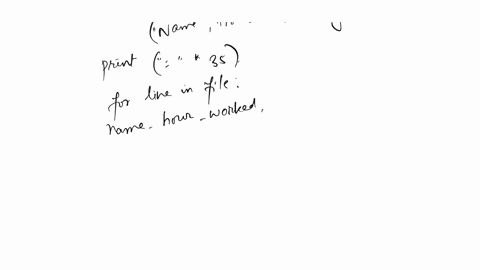 ("Name,
print ("=" * 35)
for line in file:
name_hour_worked,